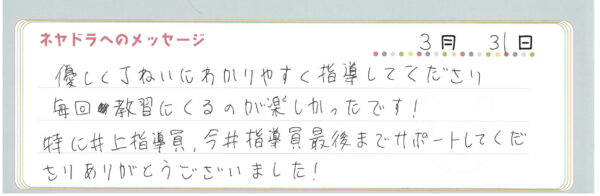 ネヤドラへのメッセージ
3月 31日
優しく丁ねいにわかりやすく指導してくださり
毎回教習にくるのが楽しかったです!
特に井上指導員,今井指導員最後までサポートしてくだ
さりありがとうございました!